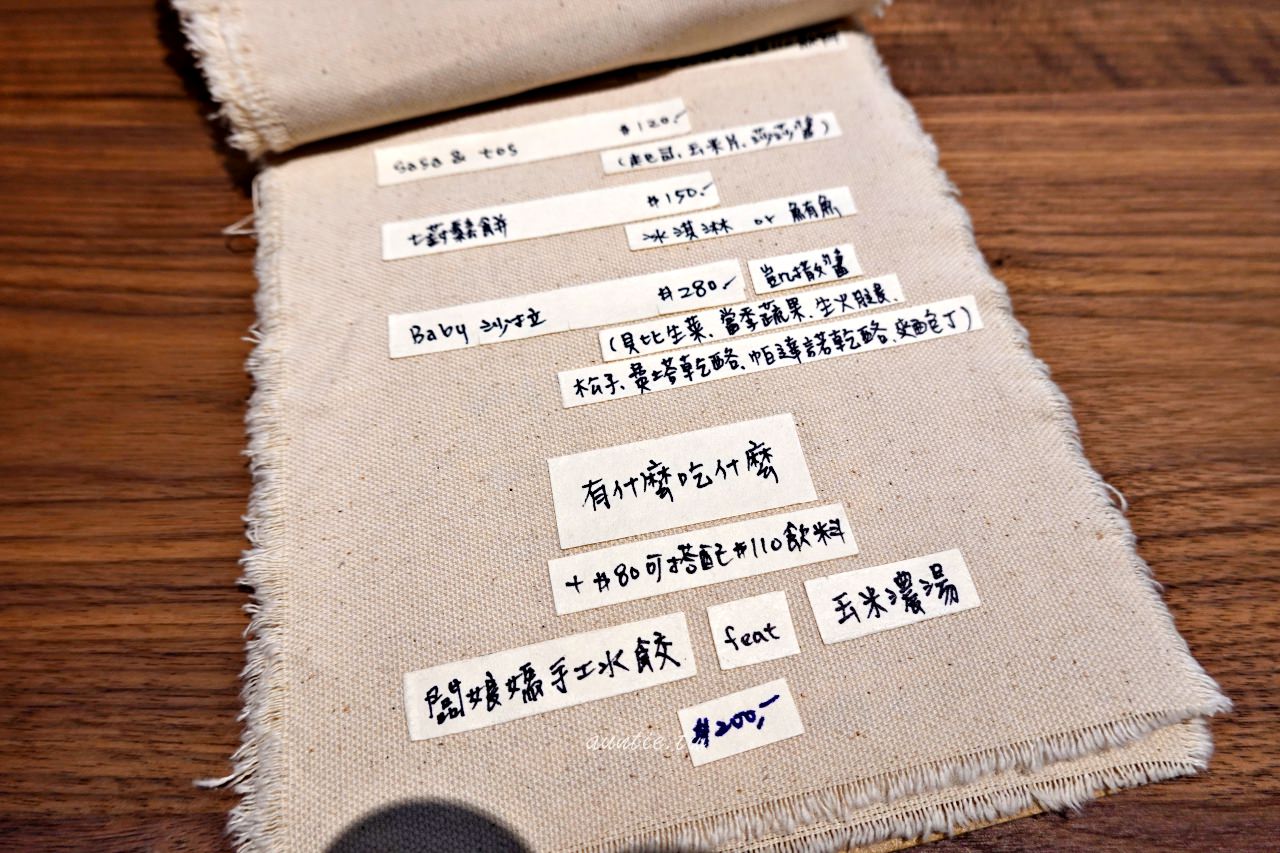 sasa & tos $120.-
(起司、玉米片、莎莎醬)
七葯鬆餅 $150.-
冰淇淋 or 鮪魚
Baby 沙拉 $280.- 凱撒醬
(貝比生菜、當季蔬果、生火腿、
松子、費塔乾酪、帕達諾乾酪、麵包丁)
有什麼吃什麼
+ $80可搭配$110飲料
闆娘媽手工水餃 feat 玉米濃湯
$200.-
auntie.t